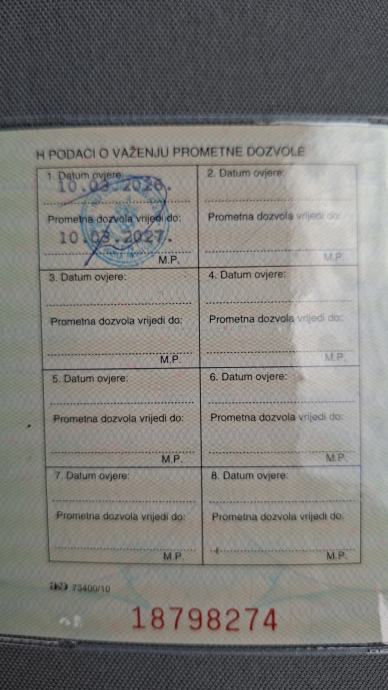 H PODACI O VAŽENJU PROMETNE DOZVOLE
1. Datum ovjere:
10.03.2026.
Prometna dozvola vrijedi do:
10.03.2027.
M.P.
2. Datum ovjere:
Prometna dozvola vrijedi do:
M.P.
3. Datum ovjere:
Prometna dozvola vrijedi do:
M.P.
4. Datum ovjere:
Prometna dozvola vrijedi do:
M.P.
5. Datum ovjere:
Prometna dozvola vrijedi do:
M.P.
6. Datum ovjere:
Prometna dozvola vrijedi do:
M.P.
7. Datum ovjere:
Prometna dozvola vrijedi do:
M.P.
8. Datum ovjere:
Prometna dozvola vrijedi do:
M.P.
73400/10
18798274